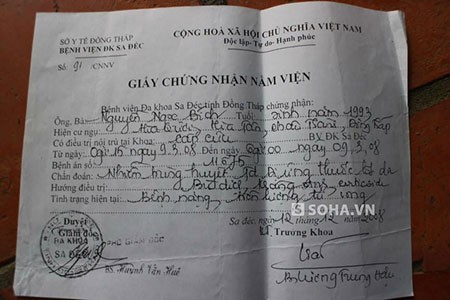 SỞ Y TẾ ĐỒNG THÁP
BỆNH VIỆN ĐK SA ĐÉC
Số: 91 /CNNV
CỘNG HOÀ XÃ HỘI CHỦ NGHĨA VIỆT NAM
Độc lập - Tự do - Hạnh phúc
GIẤY CHỨNG NHẬN NẰM VIỆN
Bệnh viện Đa khoa Sa Đéc tỉnh Đồng Tháp chứng nhận:
Ông, Bà: Nguyễn Ngọc Bích Tuổi sinh năm 1993
Hiện cư ngụ Hòa Tân, Châu Thành, Đồng Tháp
Có điều trị nội trú tại Khoa: cấp cứu BV. ĐK Sa Đéc
Từ ngày: 0g15 ngày 9.3.08 Đến ngày 09.3.08
Bệnh án số: 11675
Chẩn đoán: Nhiễm trùng huyết dị ứng thuốc
Hướng điều trị: kháng sinh
Tình trạng hiện tại: Bệnh nặng, tiên lượng tử vong
SOHA.VN
Sa đéc, ngày 12 tháng 12 năm 2008
Duyệt
Giám đốc
ĐA KHOA
SA ĐÉC
GIÁM ĐỐC
Trưởng Khoa
BS. Huỳnh Văn Huê